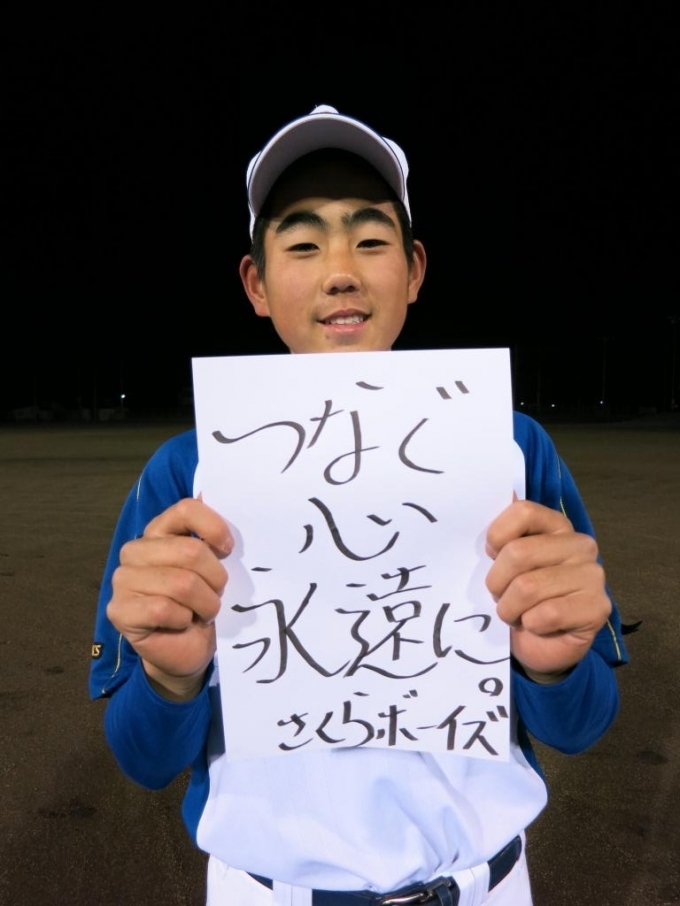 つなぐ
心
永遠に。
さくらボーイズ